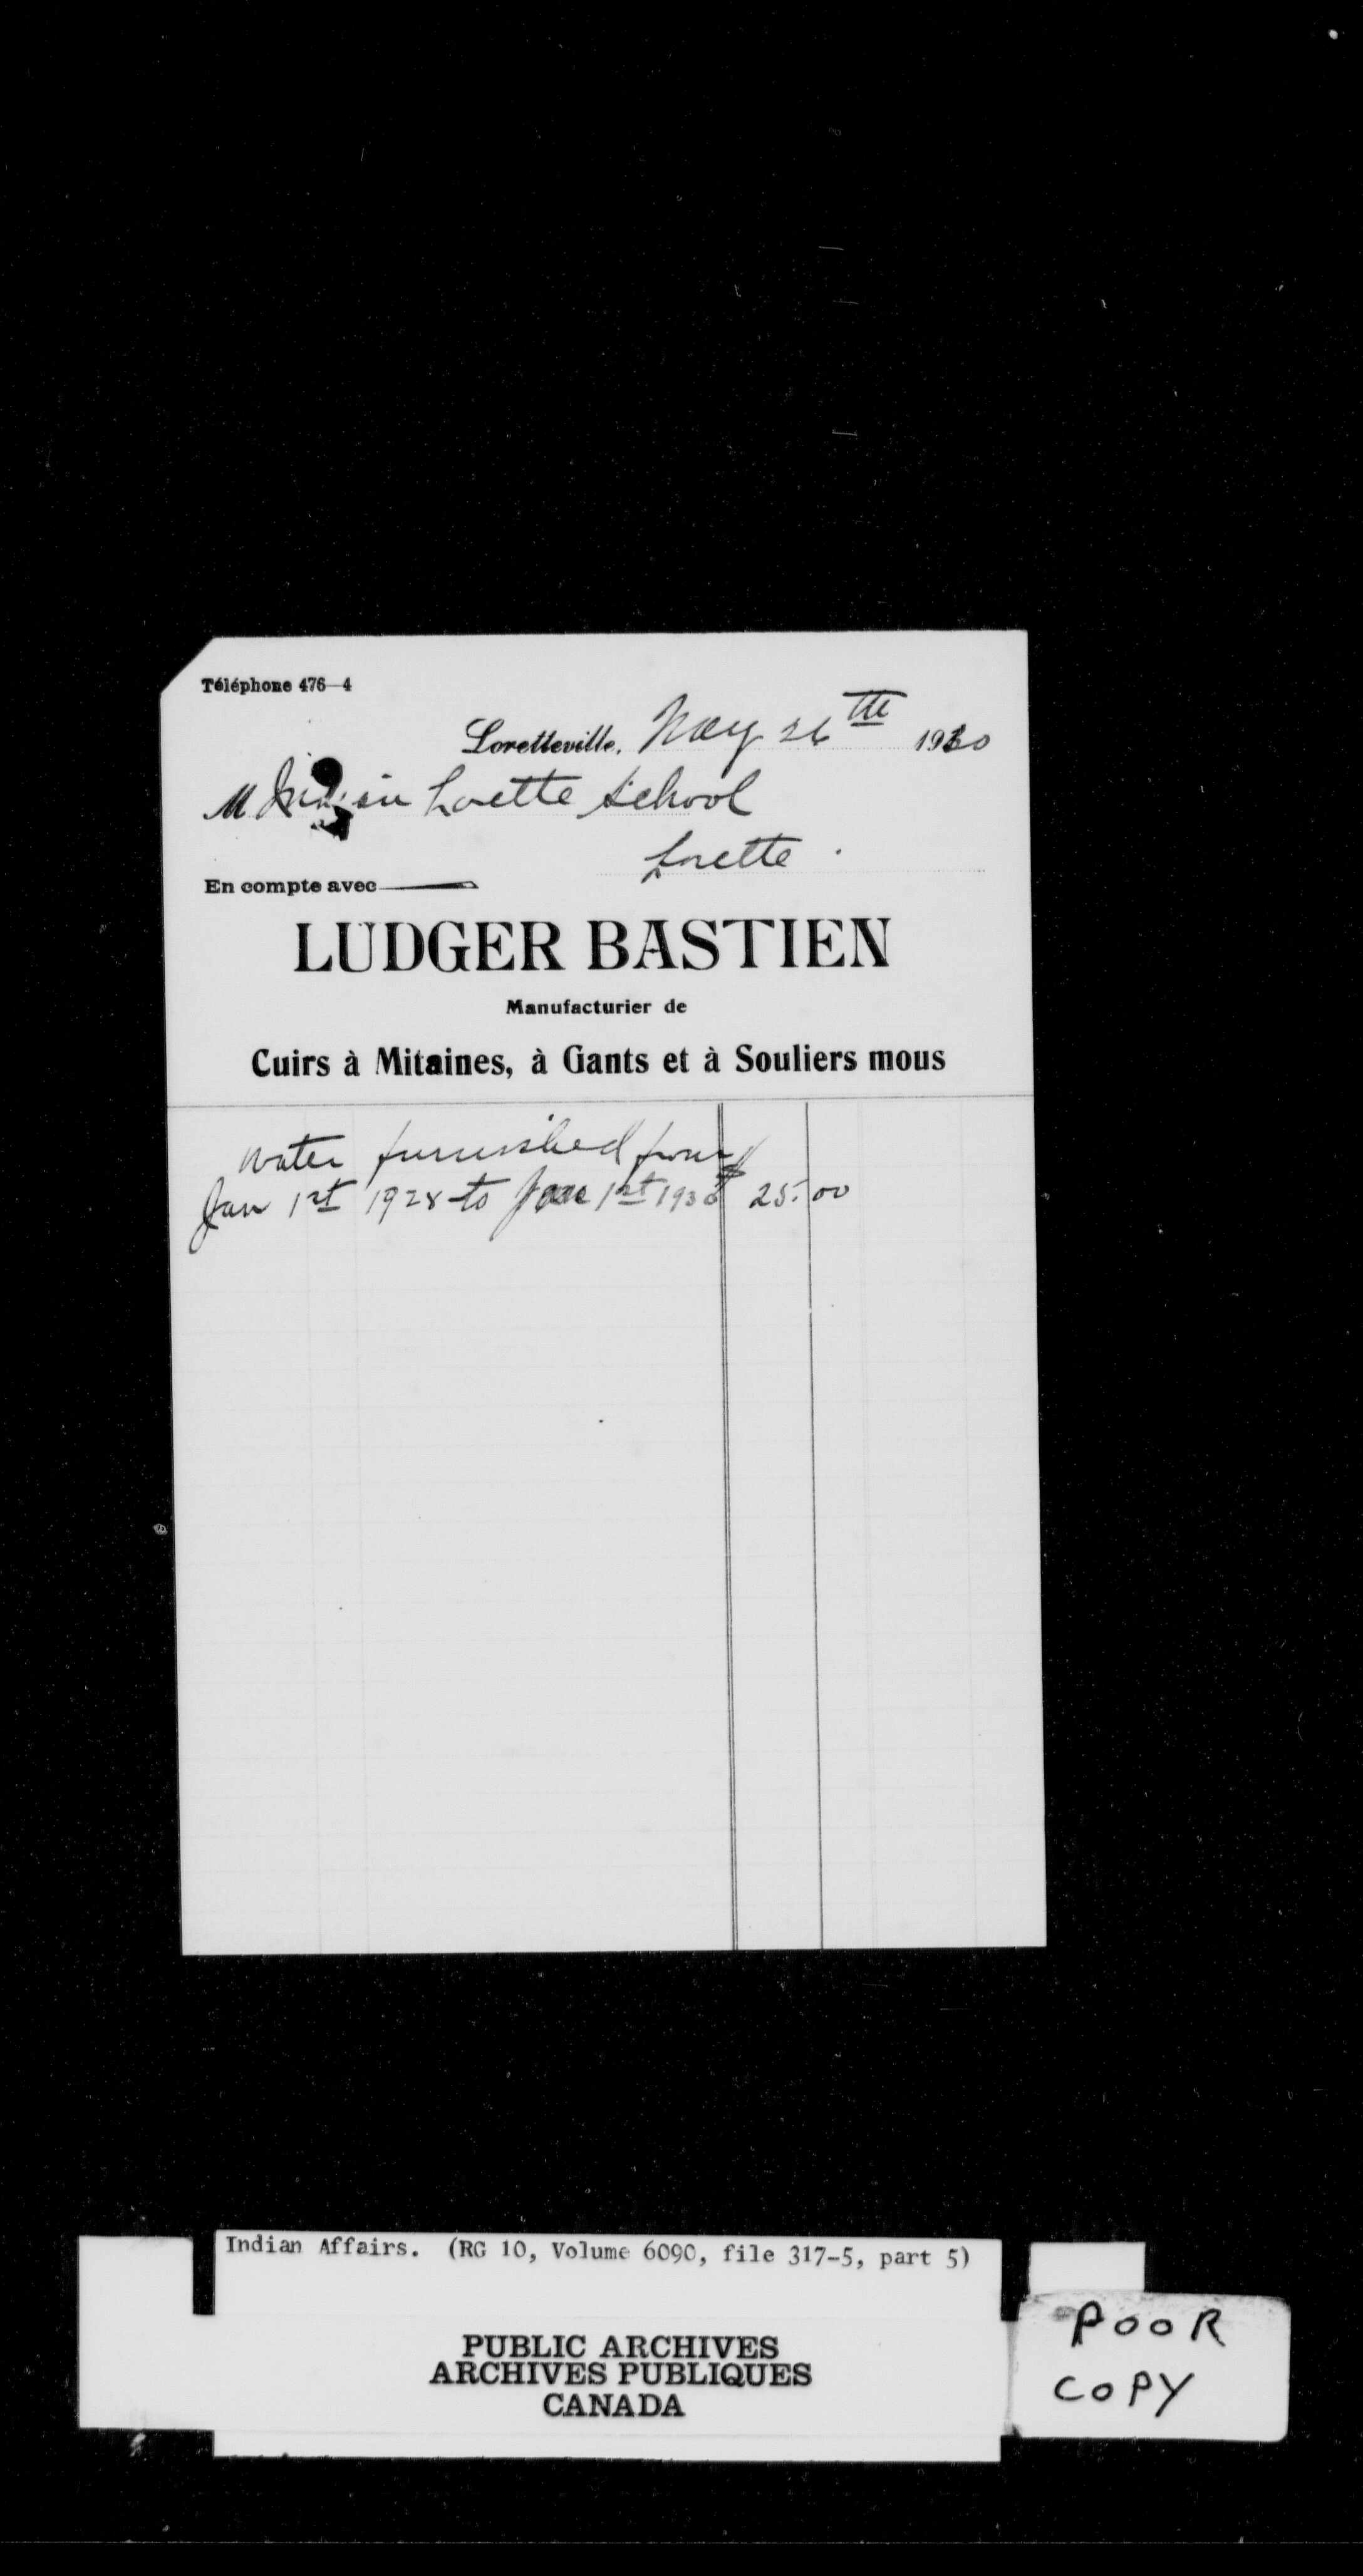 Téléphone 476-4
Loretteville, May 26th 1930
M Indian Lorette School
Lorette.
En compte avec
LUDGER BASTIEN
Manufacturier de
Cuirs à Mitaines, à Gants et à Souliers mous
Water furnished from
Jan 1st 1928 to 1st 1930 $ 25.00
Indian Affairs. (RG 10, Volume 6090, file 317-5, part 5)
PUBLIC ARCHIVES
ARCHIVES PUBLIQUES
CANADA
POOR
COPY